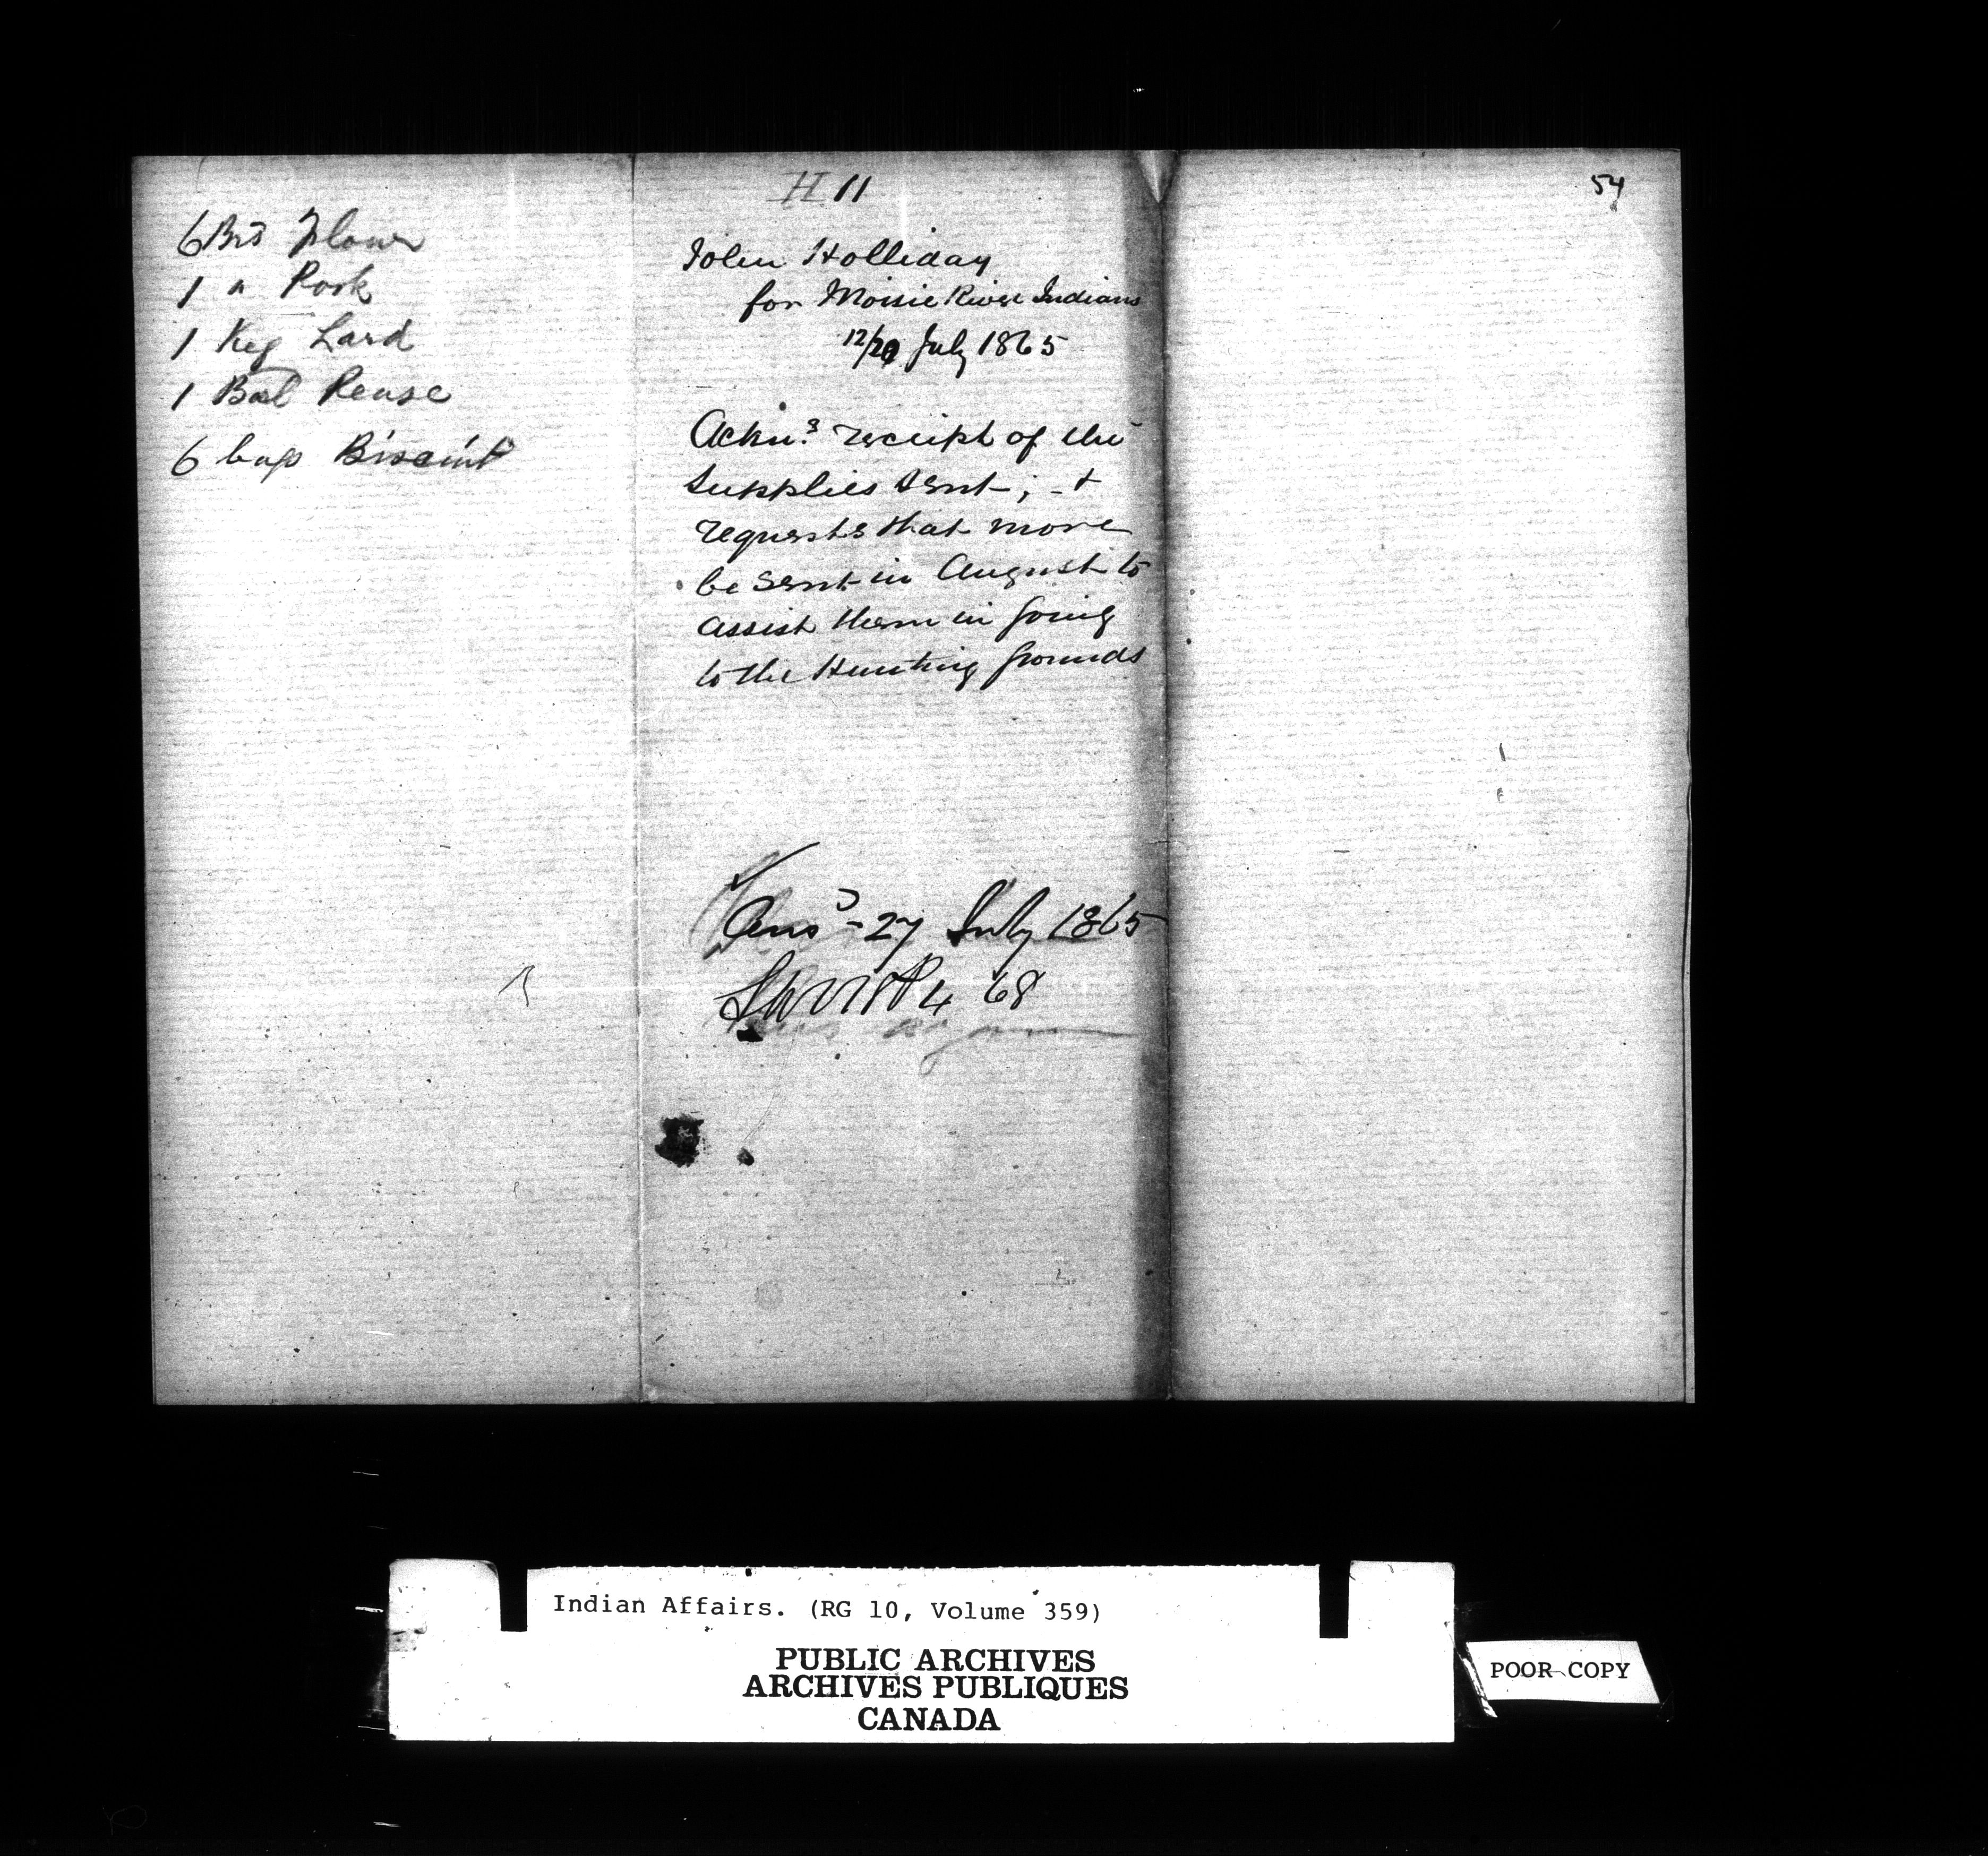 6 Brs Flour
1 " Pork
1 Keg Lard
1 Bal Pease
6 bags Biscuit
H 11
John Holliday
for Moisie River Indians
12/20 July 1865
Ackns receipt of the
supplies sent; - &
requests that more
be sent in August to
assist them in going
to the Hunting grounds
Ansd - 27 July 1865
68
54
Indian Affairs. (RG 10, Volume 359)
PUBLIC ARCHIVES
ARCHIVES PUBLIQUES
CANADA
POOR COPY